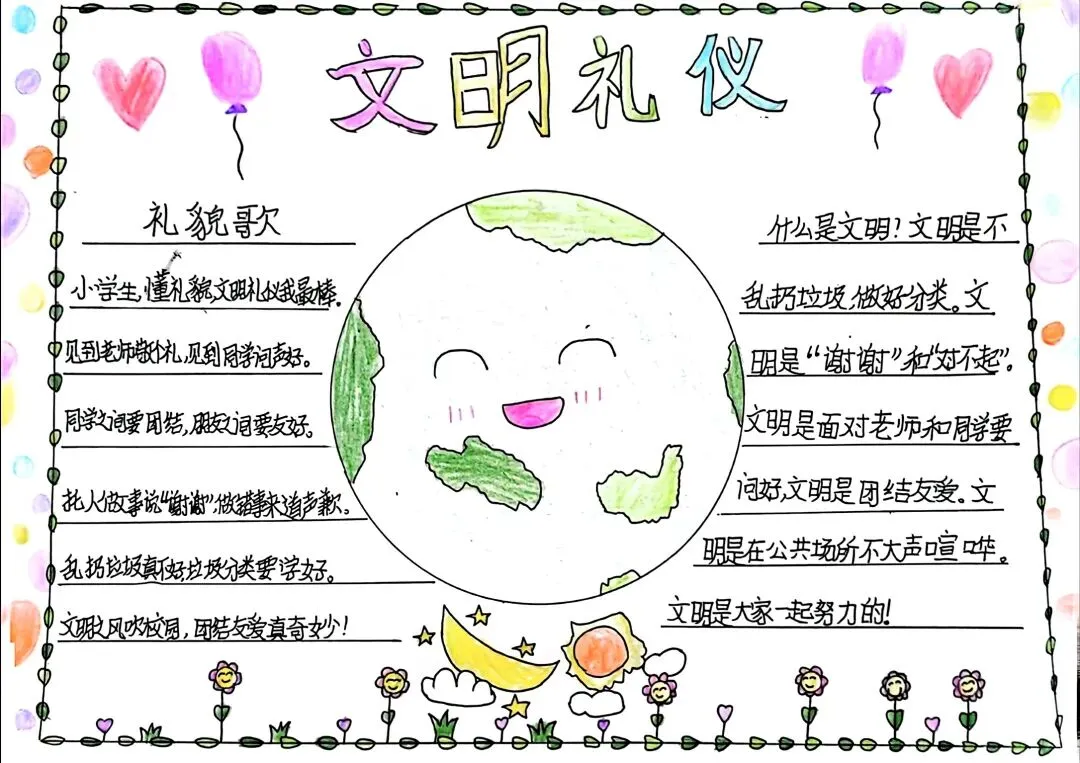 文明礼仪
礼貌歌
小学生,懂礼貌,文明礼仪我最棒。
见到老师敬个礼,见到同学问声好。
同学之间要团结,朋友之间要友好。
托人做事说“谢谢”,做错事来道声歉。
乱扔垃圾真不好,垃圾分类要学好。
文明之风吹校园,团结友爱真奇妙!
什么是文明?文明是不
乱扔垃圾,做好分类。文
明是“谢谢”和“对不起”。
文明是面对老师和同学要
问好,文明是团结友爱。文
明是在公共场所不大声喧哗。
文明是大家一起努力的!